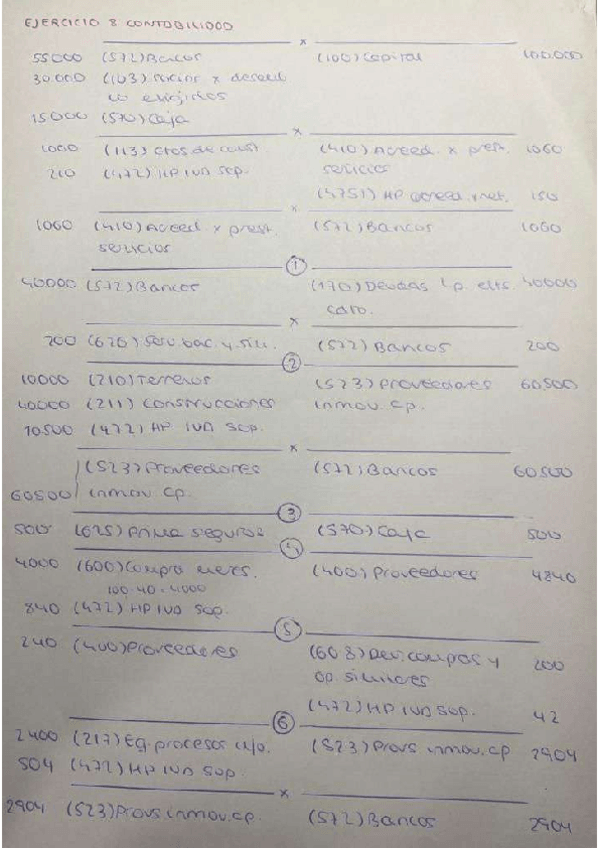 EJERCICIO 8 CONTABILIDAD
x
55000 (572) Bancos (100) Capital 100.000
30.000 (103) Socios x desemb.
no exigidos
15000 (570) Caja
x
1000 (113) Gtos de const. (410) Acreed. x prest. 1060
210 (472) HP IVA Sop. servicios
(4751) HP acreed. ret. 150
x
1060 (410) Acreed x prest. (572) Bancos 1060
servicios
1
40000 (572) Bancos (170) Deudas lp. ets. 40000
cdto.
x
200 (626) Serv. bac. y sili. (572) Bancos 200
2
10000 (210) Terrenos (523) Proveedores 60500
40000 (211) Construcciones inmov. cp.
10500 (472) HP IVA Sop.
x
(523) Proveedores (572) Bancos 60500
60500 inmov cp.
3
500 (625) Prima seguros (570) Caja 500
4
4000 (600) Compra mercs. (400) Proveedores 4840
100·40=4000
840 (472) HP IVA Sop.
5
240 (400) Proveedores (608) Dev. compras y 200
op. similares
(472) HP IVA Sop. 42
6
2400 (217) Eq. procesos info. (523) Provs inmov. cp 2904
504 (472) HP IVA Sop
x
2904 (523) Provs inmov. cp. (572) Bancos 2904